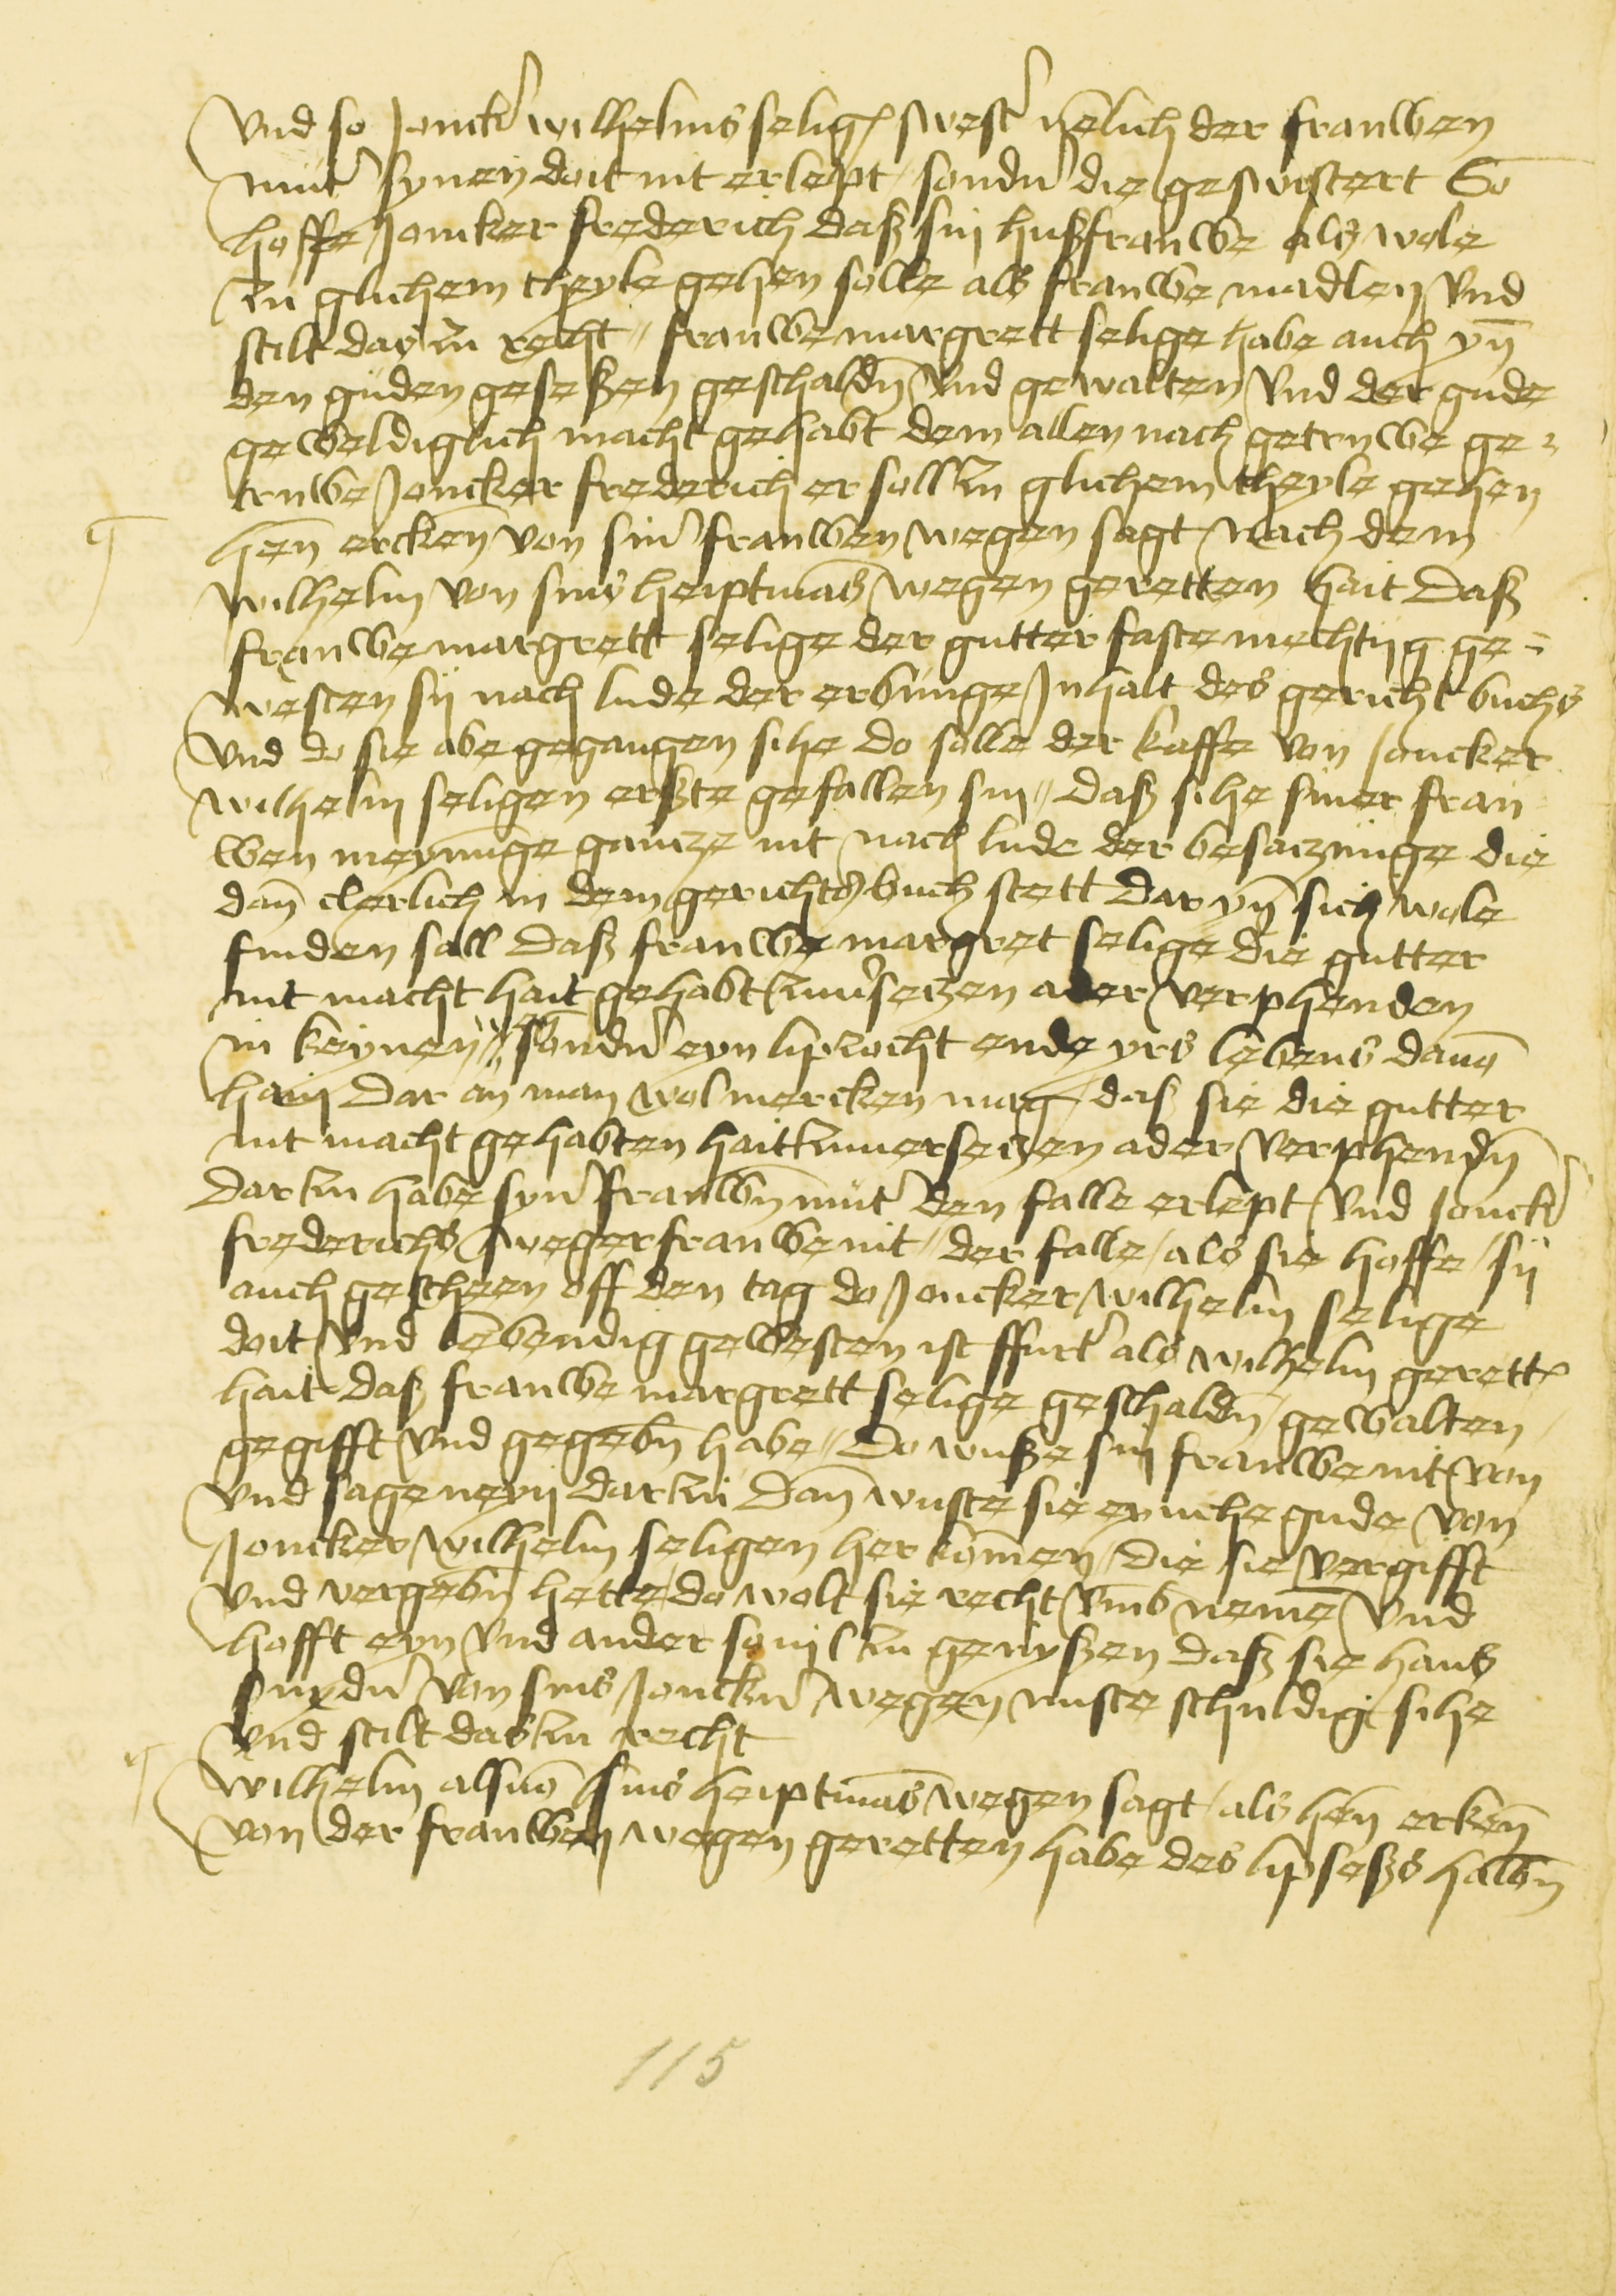 Vnd so Joncker wilhelms selig swest nēlich der frauwen
mūt synen doit nit erlept / sondn die geswistert So
hoffe Joncker frederich daß sin hußfrauwe als wole
zu glichem theyle gehen solle als frauwe madlen vnd
stilt das zu recht // frauwe margrett selige habe auch yn̄
den guden geseßen geschaldn̄ vnd gewalten vnd der gude
geweldiglich macht gehabt dem allen nach getruwe ge=
truwe Joncker frederich er soll zu glichem theyle gehen
hen̄ ercken̄ von sin frauwen wegen sagt nach dem
wilhelm von sins heiptmas̄ wegen geretten hait daß
frauwe margrett selige der gutter faste mechtig ge=
westen sij nach lude der erbunge Jnhalt des gericht buchs
vnd do sie abe gegangen sihe do solle der kaffe von Joncker
wilhelm seligen erste gefallen sin // daß sihe siner frau
wen meynunge gancze nit nach lude der besaczunge die
dan̄ clerlich in dem gerichts buch stett dar yn̄ sich wole
finden sall daß frauwe margret selige die gutter
nit macht hait gehabt zuu'seczen ader verphenden
in keynen // sondn eyn lipzocht ende yrs lebens dauō
hain dar an man wol mercken mag / daß sie die gutter
nit macht gehabten hait zuuerseczen ader verphendn̄
dar zu habe syn frauwn̄ mut den falle erlept vnd Jonck
frederichs sweger frauwe nit // der falle / als sie hoffe / sij
auch gescheen off den tag do Joncker wilhelm selige
doit vnd lebendig gewesten ist ffurt als wilhelm gerett
hait daß frauwe margrett selige geschaldn̄ / gewalten
gegifft vnd gegebn̄ habe // Do wuße sin frauwe nit von
vnd sage neyn dar zu dan̄ wuste sie eyniche gude von
Joncker wilhelm seligen her komen / die sie vergifft
vnd vergebn̄ hette / do wolt sie recht vmb neme vnd
hofft eyn vnd ander sovil zu genyßen daß sie hans
snydn von sins Jonckn wegen nuste schuldig sihe
vnd stilt das zu recht
wilhelm also vō sins heiptmas̄ wegen sagt / als hen̄ erken̄
von der frauwen wegen geretten habe des lipseßs halbn̄
115